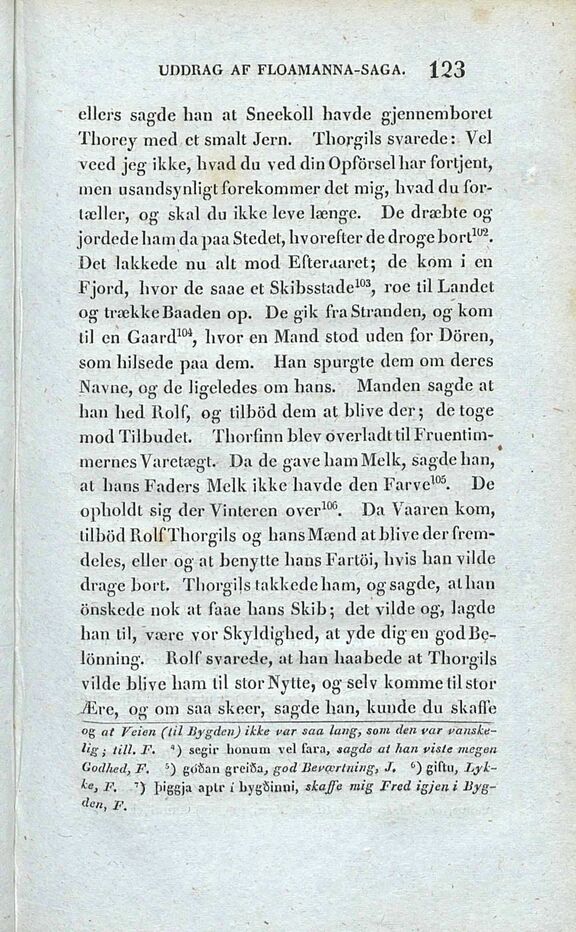 UDDRAG AF FLOAMANNA-SAGA. 123
ellers sagde han at Sneekoll havde gjennemboret
Thorey med et smalt Jern. Thorgils svarede: Vel
veed jeg ikke, hvad du ved din Opförsel har fortjent,
men usandsynligt forekommer det mig, hvad du for-
tæller, og skal du ikke leve længe. De dræbte og
jordede ham da paa Stedet, hvorefter de droge bort¹⁰².
Det lakkede nu alt mod Efteraaret; de kom i en
Fjord, hvor de saae et Skibsstade¹⁰³, roe til Landet
og trække Baaden op. De gik fra Stranden, og kom
til en Gaard¹⁰⁴, hvor en Mand stod uden for Dören,
som hilsede paa dem. Han spurgte dem om deres
Navne, og de ligeledes om hans. Manden sagde at
han hed Rolf, og tilböd dem at blive der; de toge
mod Tilbudet. Thorfinn blev overladt til Fruentim-
mernes Varetægt. Da de gave ham Melk, sagde han,
at hans Faders Melk ikke havde den Farve¹⁰⁵. De
opholdt sig der Vinteren over¹⁰⁶. Da Vaaren kom,
tilböd Rolf Thorgils og hans Mænd at blive der frem-
deles, eller og at benytte hans Fartöi, hvis han vilde
drage bort. Thorgils takkede ham, og sagde, at han
önskede nok at faae hans Skib; det vilde og, lagde
han til, være vor Skyldighed, at yde dig en god Be-
lönning. Rolf svarede, at han haabede at Thorgils
vilde blive ham til stor Nytte, og selv komme til stor
Ære, og om saa skeer, sagde han, kunde du skaffe
og at Veien (til Bygden) ikke var saa lang, som den var vanske-
lig; till. F. ⁴) segir honum vel fara, sagde at han viste megen
Godhed, F. ⁵) góðan greiða, god Beværtning, J. ⁶) giftu, Lyk-
ke, F. ⁷) þiggja aptr í bygðinni, skaffe mig Fred igjen i Byg-
den, F.